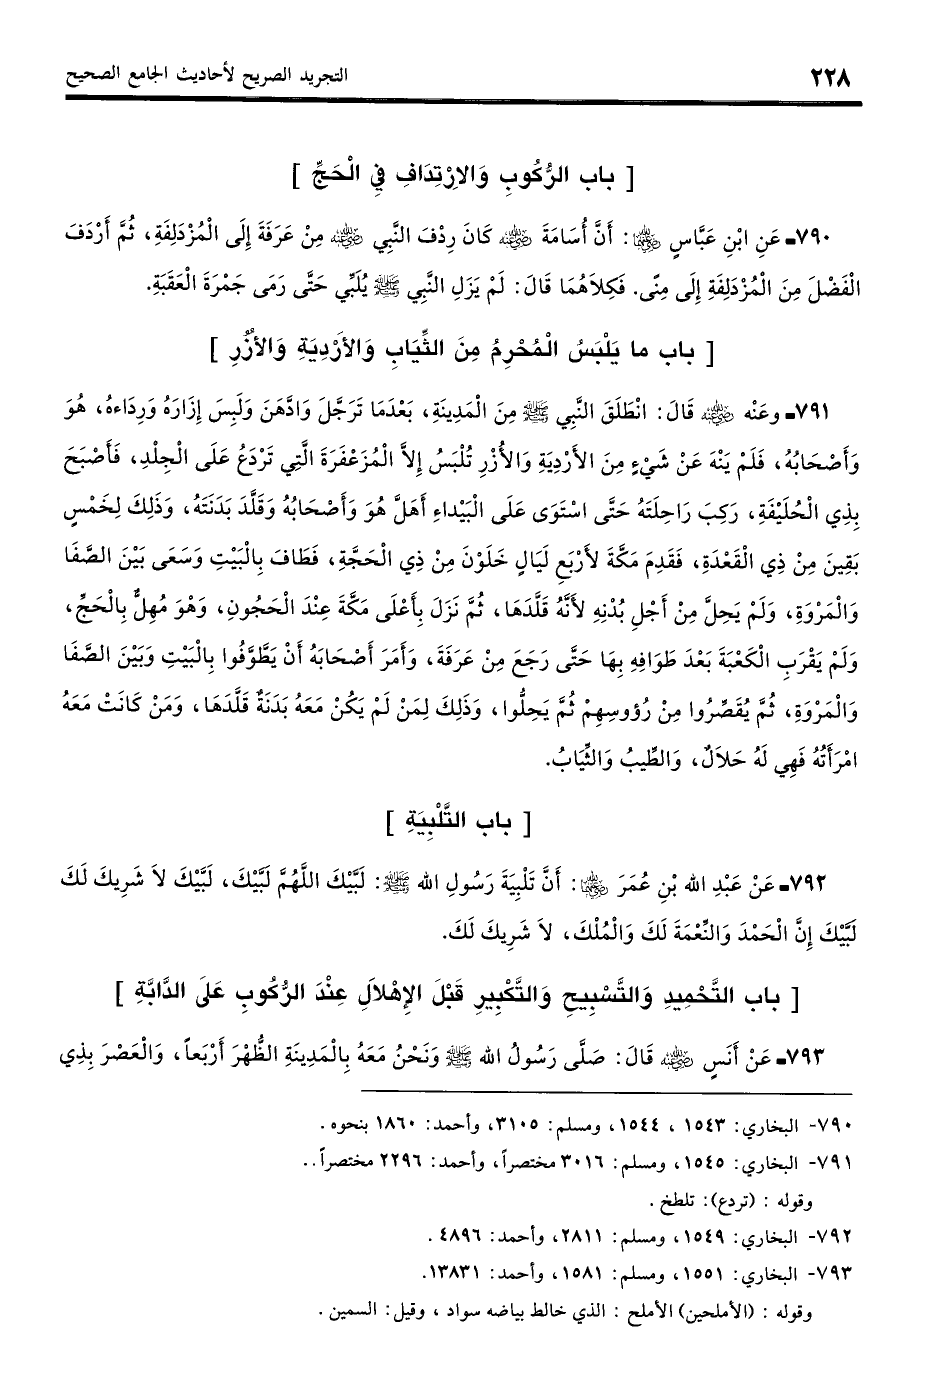 ٢٢٨ التجريد الصريح لأحاديث الجامع الصحيح
[ باب الرُّكُوبِ وَالاِرْتِدَافِ فِي الْحَجِّ ]
٧٩٠ـ عَنِ ابْنِ عَبَّاسٍ ﵄: أَنَّ أُسَامَةَ ﵁ كَانَ رِدْفَ النَّبِي ﷺ مِنْ عَرَفَةَ إِلَى الْمُزْدَلِفَةِ، ثُمَّ أَرْدَفَ
الْفَضْلَ مِنَ الْمُزْدَلِفَةِ إِلَى مِنًى. فَكِلاَهُمَا قَالَ: لَمْ يَزَلِ النَّبِي ﷺ يُلَبِّي حَتَّى رَمَى جَمْرَةَ الْعَقَبَةِ.
[ باب ما يَلْبَسُ الْمُحْرِمُ مِنَ الثِّيَابِ وَالأَرْدِيَةِ وَالأُزُرِ ]
٧٩١ـ وعَنْه ﵁ قَالَ: انْطَلَقَ النَّبِي ﷺ مِنَ الْمَدِينَةِ، بَعْدَمَا تَرَجَّلَ وَادَّهَنَ وَلَبِسَ إِزَارَهُ وَرِدَاءهُ، هُوَ
وَأَصْحَابُهُ، فَلَمْ يَنْهَ عَنْ شَيْءٍ مِنَ الأَرْدِيَةِ وَالأُزْرِ تُلْبَسُ إِلاَّ الْمُزَعْفَرَةَ الَّتِي تَرْدَعُ عَلَى الْجِلْدِ، فَأَصْبَحَ
بِذِي الْحُلَيْفَةِ، رَكِبَ رَاحِلَتَهُ حَتَّى اسْتَوَى عَلَى الْبَيْدَاءِ أَهَلَّ هُوَ وَأَصْحَابُهُ وَقَلَّدَ بَدَنَتَهُ، وَذَلِكَ لِخَمْسٍ
بَقِينَ مِنْ ذِي الْقَعْدَةِ، فَقَدِمَ مَكَّةَ لأَرْبَعِ لَيَالٍ خَلَوْنَ مِنْ ذِي الْحَجَّةِ، فَطَافَ بِالْبَيْتِ وَسَعَى بَيْنَ الصَّفَا
وَالْمَرْوَةِ، وَلَمْ يَحِلَّ مِنْ أَجْلِ بُدْنِهِ لأَنَّهُ قَلَّدَهَا، ثُمَّ نَزَلَ بِأَعْلَى مَكَّةَ عِنْدَ الْحَجُونِ، وَهْوَ مُهِلٌّ بِالْحَجِّ،
وَلَمْ يَقْرَبِ الْكَعْبَةَ بَعْدَ طَوَافِهِ بِهَا حَتَّى رَجَعَ مِنْ عَرَفَةَ، وَأَمَرَ أَصْحَابَهُ أَنْ يَطَّوَّفُوا بِالْبَيْتِ وَبَيْنَ الصَّفَا
وَالْمَرْوَةِ، ثُمَّ يُقَصِّرُوا مِنْ رُؤُوسِهِمْ ثُمَّ يَحِلُّوا، وَذَلِكَ لِمَنْ لَمْ يَكُنْ مَعَهُ بَدَنَةٌ قَلَّدَهَا، وَمَنْ كَانَتْ مَعَهُ
امْرَأَتُهُ فَهِي لَهُ حَلاَلٌ، وَالطِّيبُ وَالثِّيَابُ.
[ باب التَّلْبِيَةِ ]
٧٩٢ـ عَنْ عَبْدِ الله بْنِ عُمَرَ ﵄: أَنَّ تَلْبِيَةَ رَسُولِ الله ﷺ: لَبَّيْكَ اللَّهُمَّ لَبَّيْكَ، لَبَّيْكَ لاَ شَرِيكَ لَكَ
لَبَّيْكَ إِنَّ الْحَمْدَ وَالنِّعْمَةَ لَكَ وَالْمُلْكَ، لاَ شَرِيكَ لَكَ.
[ باب التَّحْمِيدِ وَالتَّسْبِيحِ وَالتَّكْبِيرِ قَبْلَ الإِهْلاَلِ عِنْدَ الرُّكُوبِ عَلَى الدَّابَّةِ ]
٧٩٣ـ عَنْ أَنَسٍ ﵁ قَالَ: صَلَّى رَسُولُ الله ﷺ وَنَحْنُ مَعَهُ بِالْمَدِينَةِ الظُّهْرَ أَرْبَعاً، وَالْعَصْرَ بِذِي
٧٩٠- البخاري: ١٥٤٣ ، ١٥٤٤، ومسلم: ٣١٠٥، وأحمد: ١٨٦٠ بنحوه.
٧٩١- البخاري: ١٥٤٥، ومسلم: ٣٠١٦ مختصراً، وأحمد: ٢٢٩٦ مختصراً..
وقوله : (تردع): تلطخ .
٧٩٢- البخاري: ١٥٤٩، ومسلم: ٢٨١١، وأحمد: ٤٨٩٦ .
٧٩٣- البخاري: ١٥٥١، ومسلم: ١٥٨١، وأحمد: ١٣٨٣١.
وقوله : (الأملحين) الأملح : الذي خالط بياضه سواد ، وقيل: السمين .